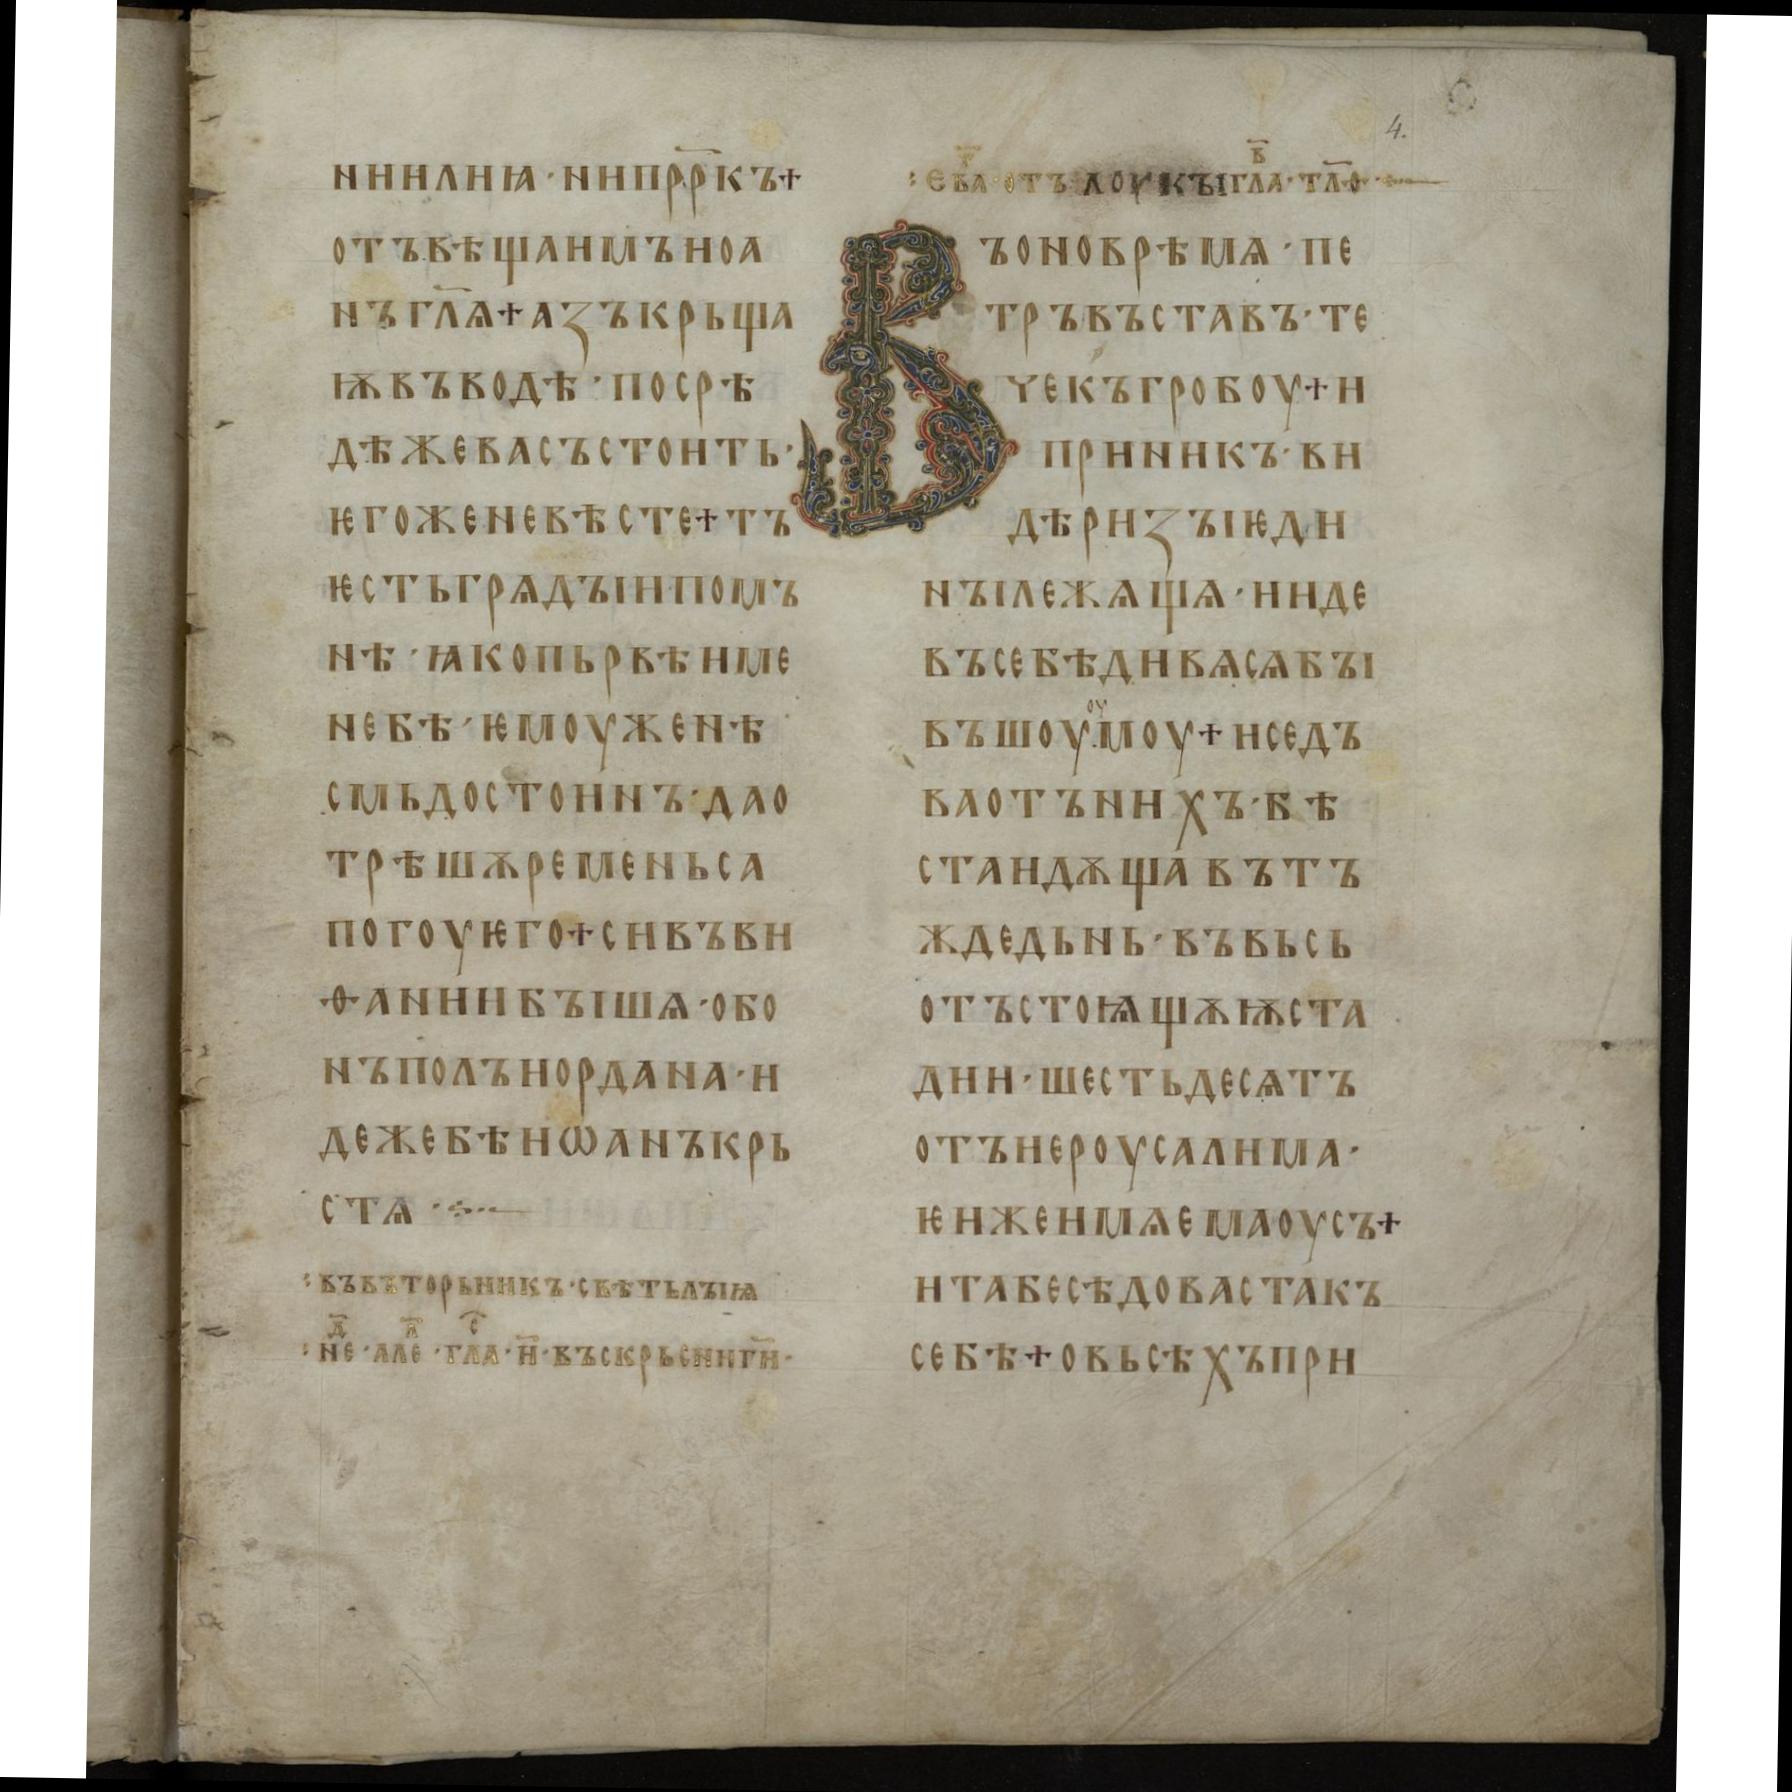 ни илиꙗ · ни пррⷪ҇къ +
отъвѣща имъ иоа
нъ гл҃ѧ + азъ крьща
ѭ въ водѣ · посрѣ
дѣ же васъ стоить ·
ѥгоже не вѣсте + тъ
ѥсть грѧдꙑи по мъ
нѣ · ꙗко пьрвѣи ме
не бѣ · ѥмоуже нѣ
смь достоинъ · да о
трѣшѫ ремень са
погоу ѥго + си въ ви
ѳании бꙑшѧ · об о
нъ полъ иордана · и
деже бѣ иѡанъ крь
стѧ ·
въ въторьникъ · свѣтьлꙑꙗ
не҃д · але҃л · гла҃с · и҃ · въскрьсни г҃и ·
4.
ев҃а · отъ лоукꙑ гла҃в · тл҃о ·
Въ оно врѣмѧ · пе
тръ въставъ · те
че къ гробоу + и
приникъ · ви
дѣ ризꙑ ѥди
нꙑ лежѧщѧ · и иде
въ себѣ дивѧ сѧ бꙑ
въшоуоумоу + и се дъ
ва отъ нихъ · бѣ
ста идѫща въ тъ
жде дьнь · въ вьсь
отъстоѩщѫѭ ста
дии · шесть десѧтъ
отъ иероусалима ·
ѥи же имѧ емаоусъ +
и та бесѣдоваста къ
себѣ + о вьсѣхъ при